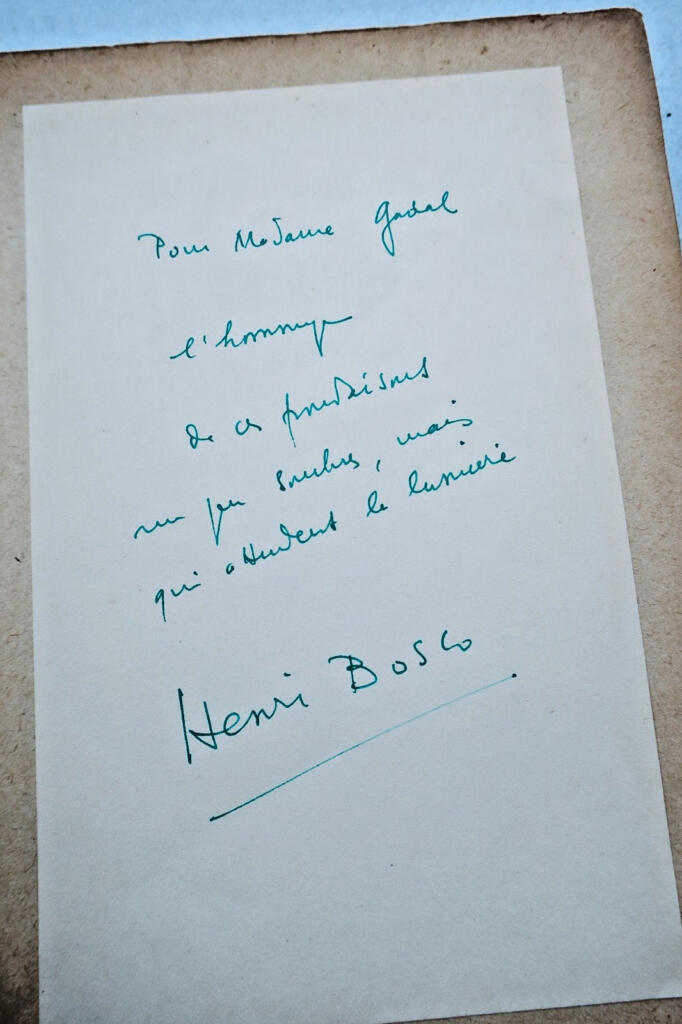 Pour Madame Gadal
l'hommage
de ces frondaisons
un peu sombres, mais
qui attendent la lumière
Henri Bosco